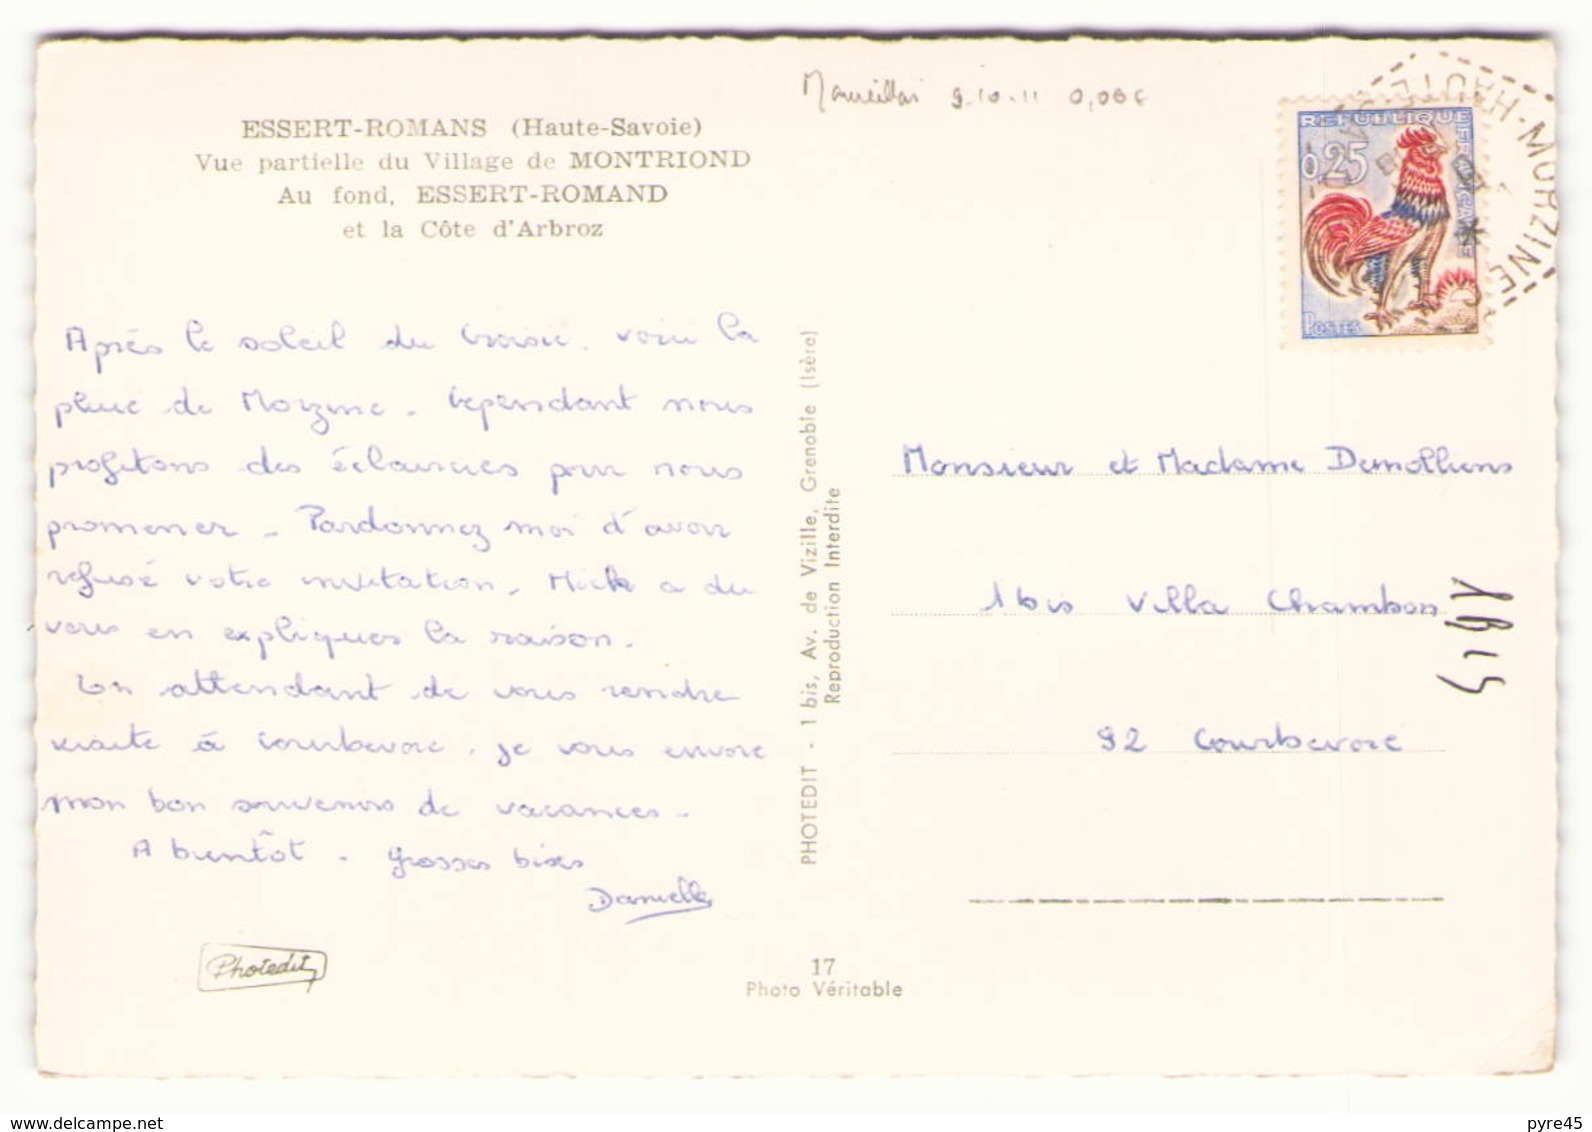 Marseillan 9.10.11 0,08€
ESSERT-ROMANS (Haute-Savoie)
Vue partielle du Village de MONTRIOND
Au fond, ESSERT-ROMAND
et la Côte d'Arbroz
REPUBLIQUE FRANCAISE
0,25
POSTES
HAUTE-
MORZINE
Après le soleil du Croisic, voici la
pluie de Morzine - Cependant nous
profitons des éclaircies pour nous
promener - Pardonnez moi d'avoir
refusé votre invitation, Mick a du
vous en expliquer la raison.
En attendant de vous rendre
visite à Courbevoie, je vous envoie
mon bon souvenirs de vacances -
A bientôt - grosses bises
Danielle
Photedit
PHOTEDIT - 1 bis, Av. de Vizille, Grenoble (Isère)
Reproduction Interdite
17
Photo Véritable
Monsieur et Madame Demolliens
1 bis Villa Chambon
92 Courbevoie
www.delcampe.net
pyre45